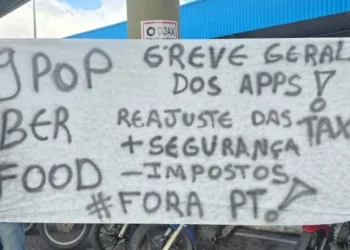 DJAX
9POP
BER
FOOD
GREVE GERAL
DOS APPS!
REAJUSTE DAS TAX
+ SEGURANÇA
- IMPOSTOS
#FORA PT!